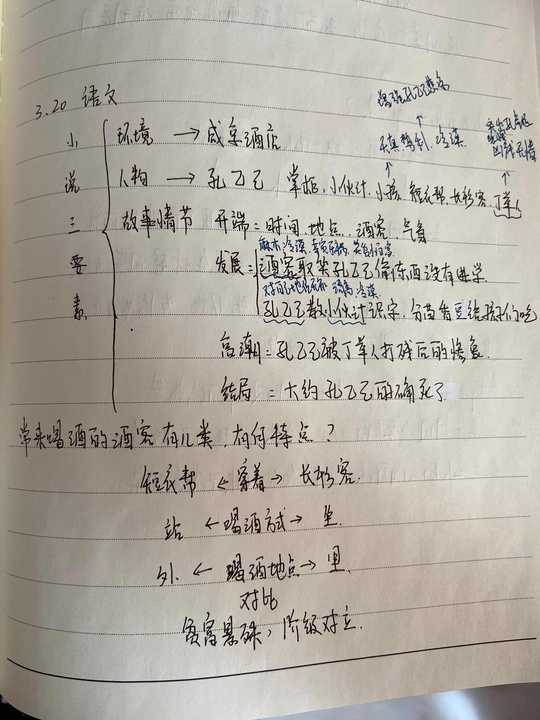 3.20 语文
小说三要素
环境 → 咸亨酒店
人物 → 孔乙己 掌柜、小伙计、小孩、短衣帮、长衫客、丁举人
冷漠
故事情节 开端：时间、地点、酒客、气氛
麻木冷漠
发展：酒客取笑孔乙己偷东西没有进学
冷漠
孔乙己教小伙计识字，分茴香豆给孩子们吃
高潮：孔乙己被丁举人打残后的惨象
结局：大约孔乙己的确死了
常来喝酒的酒客有几类，有何特点？
短衣帮 ← 穿着 → 长衫客
站 ← 喝酒方式 → 坐
外 ← 喝酒地点 → 里
对比
贫富悬殊，阶级对立